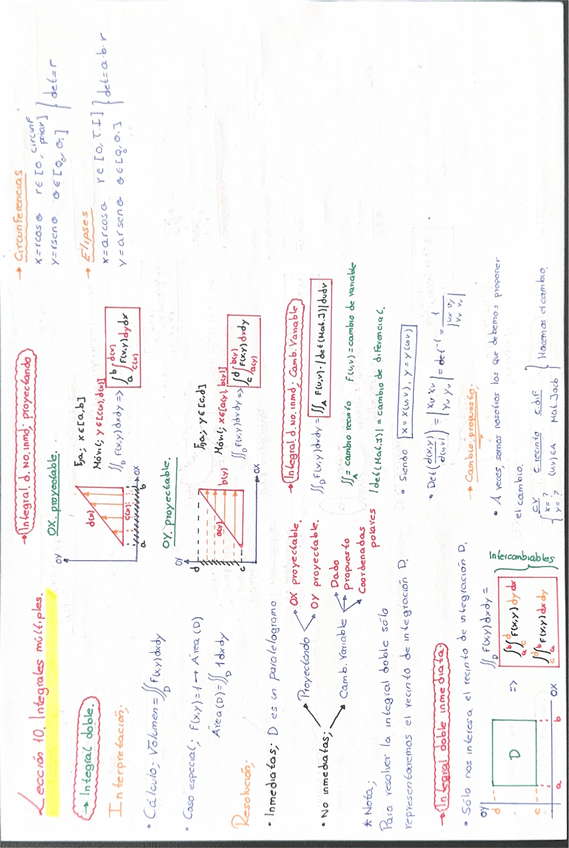 Lección 10. Integrales múltiples.
→ Integral doble.
Interpretación;
• Cálculo; Volumen = ∬_D F(x,y)dxdy
• Caso especial; F(x,y)=1 → Área (D)
Área(D) = ∬_D 1 dxdy
Resolución;
• Inmediatas; D es un paralelogramo
• No inmediatas;
Proyectando
OX proyectable.
OY proyectable.
Camb. Variable
Dado
Propuesto
Coordenadas polares
* Nota;
Para resolver la integral doble sólo
representaremos el recinto de integración D.
→ Integral doble inmediata
• Sólo nos interesa el recinto de integración D.
OY
d
c
D
a
b
OX
∬_D F(x,y)dxdy =
=> ∫_a^b ∫_c^d F(x,y) dy dx
∫_c^d ∫_a^b F(x,y) dx dy
Intercambiables
→ Integral d. No. inmd; proyectando
OX. proyectable.
OY
d(x)
c(x)
a
b
OX
Fija; x∈[a,b]
Móvil; y∈[c(x),d(x)]
∬_D F(x,y)dxdy => ∫_a^b ∫_c(x)^d(x) F(x,y)dydx
OY. proyectable.
OY
d
c
a(y)
b(y)
OX
Fija; y∈[c,d]
Móvil; x∈[a(y),b(y)]
∬_D F(x,y)dxdy => ∫_c^d ∫_a(y)^b(y) F(x,y)dxdy
→ Integral d. No. inmd; Camb. Variable
∬_D F(x,y)dxdy = ∬_A F(u,v)·|det(Mat.J)|dudv
∬_A = cambio recinto F(u,v) = cambio de variable
|det(Mat.J)| = cambio de diferencial.
• Siendo x = x(u,v), y = y(u,v)
• Det(d(x,y)/d(u,v)) = |xu xv / yu yv| = det⁻¹ = 1/|ux uy / vx vy|
→ Cambio propuesto;
• A veces, somos nosotros los que debemos proponer
el cambio.
CV C recinto C.dif
x = ? (u,v)∈A Mat.Jacb
y = ?
Hacemos el cambio.
→ Circunferencias
x = rcosθ r∈[0, circunf
y = rsenθ θ∈[θ₀, θ₁] } det = r
→ Elipses
x = arcosθ r∈[0, 1]
y = brsenθ θ∈[θ₀, θ₁] } det = a·b·r